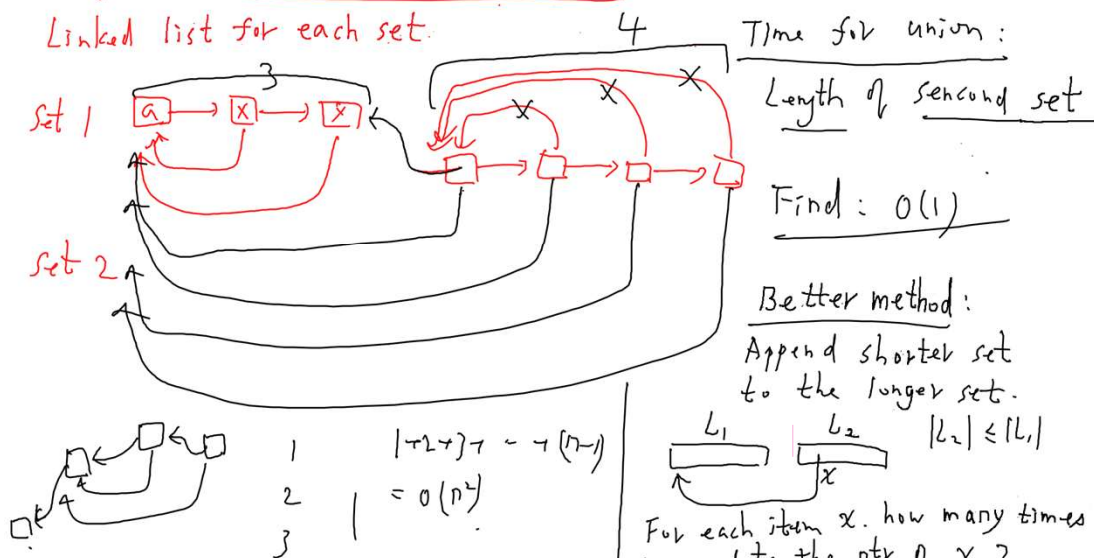 Linked list for each set.
3
4
Set 1
a
x
x
x
x
x
Set 2
1
2
3
1+2+3+ - - +(n-1)
= O(n²)
Time for union:
Length of sencond set
Find: O(1)
Better method:
Append shorter set
to the longer set.
L₁
L₂
|L₂| ≤ |L₁|
x
For each item x. how many times
the ptr of x?